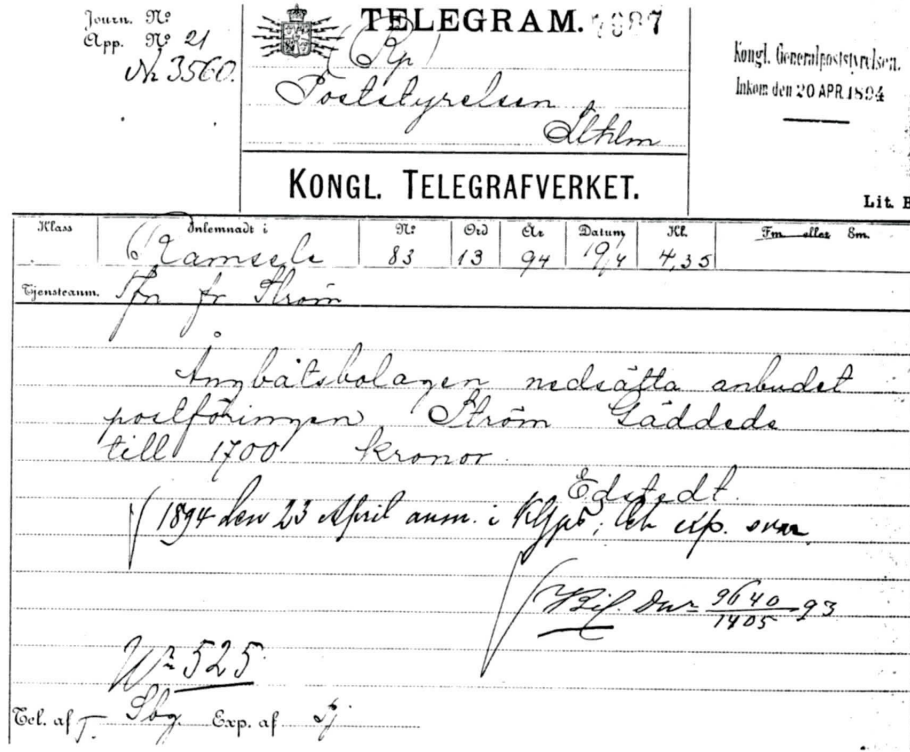 Journ. No
App. No 21
No 3560.
TELEGRAM. 7987
(Rp)
Poststyrelsen
Sthlm
Kongl. Generalpoststyrelsen.
Inkom den 20 APR. 1894
KONGL. TELEGRAFVERKET.
Lit. B
Klass Inlemnadt i No Ord År Datum Kl. Fm. eller Em.
Ramsele 83 13 94 19/4 4,35
Tjensteanm. Tfn fr Ström
Ångbåtsbolagen nedsätta anbudet
postföringen Ström Gäddede
till 1700 kronor.
Edstedt.
1894 den 23 April anm. i KGps, exp. svar
9640/1405 93
No 525
Tel. af T. Sbg. Exp. af